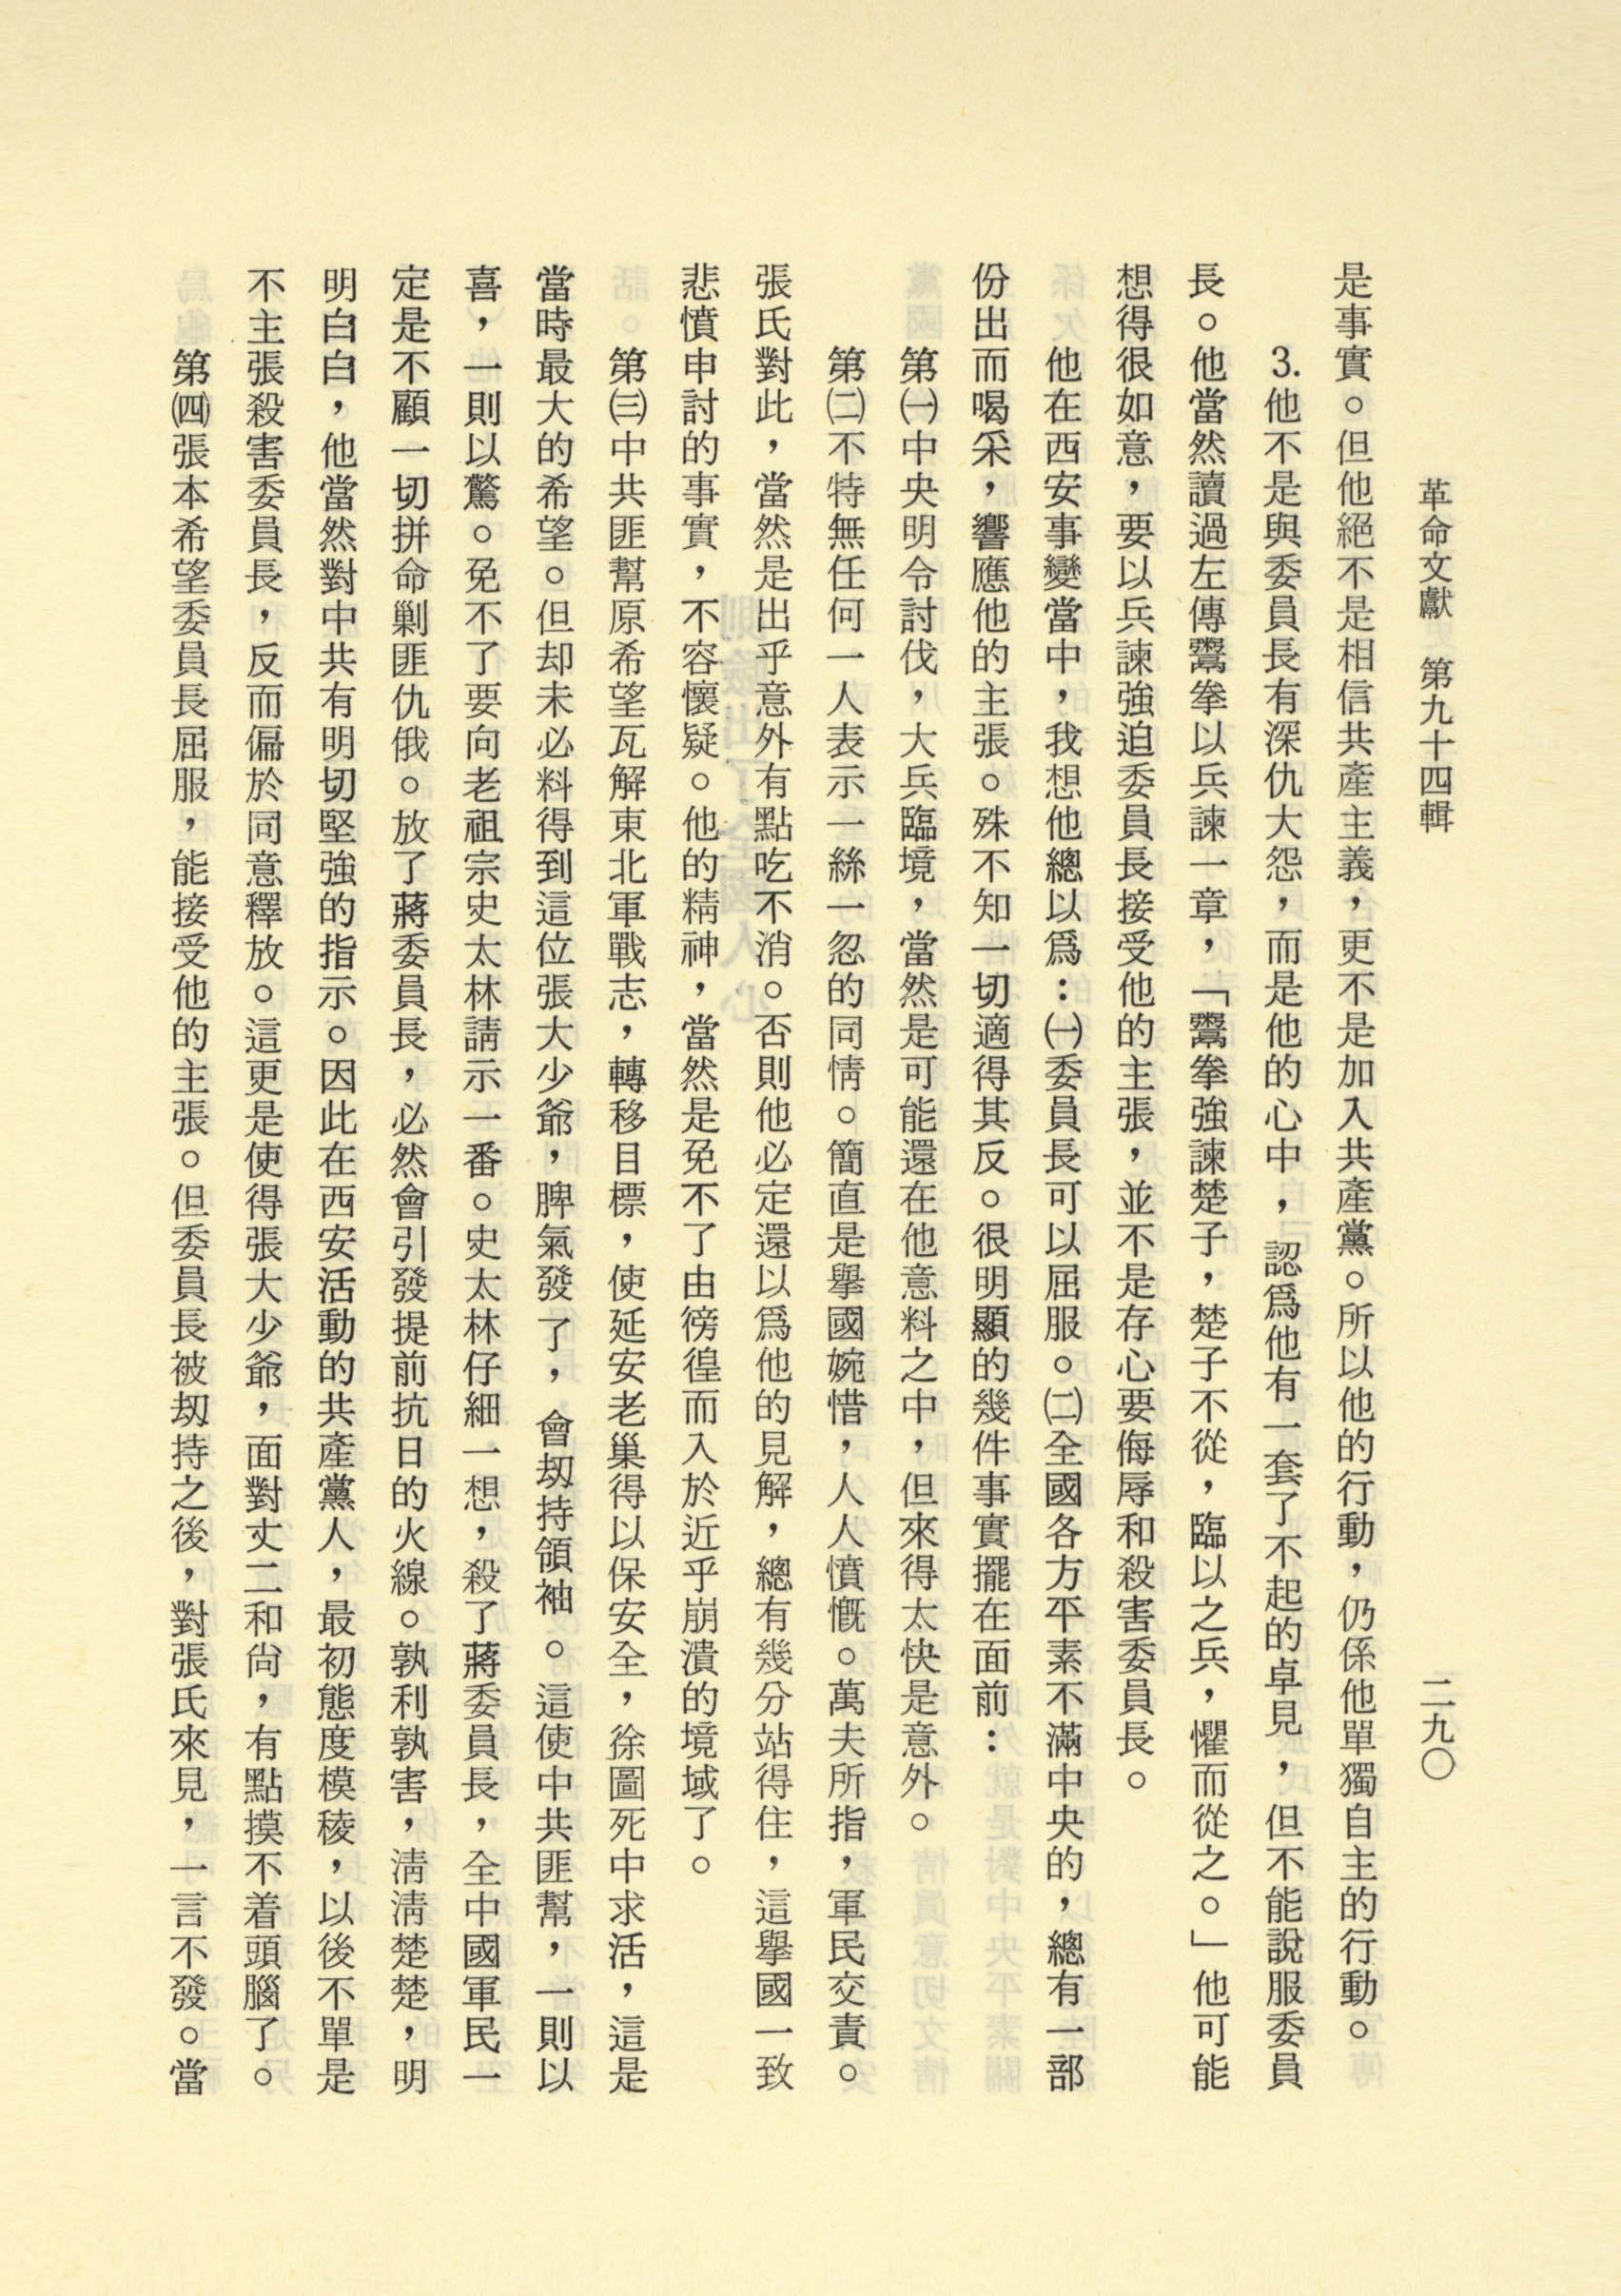 革命文獻　第九十四輯　二九〇
是事實。但他絕不是相信共產主義，更不是加入共產黨。所以他的行動，仍係他單獨自主的行動。
3.他不是與委員長有深仇大怨，而是他的心中，認爲他有一套了不起的卓見，但不能說服委員
長。他當然讀過左傳鬻拳以兵諫一章，「鬻拳強諫楚子，楚子不從，臨以之兵，懼而從之。」他可能
想得很如意，要以兵諫強迫委員長接受他的主張，並不是存心要侮辱和殺害委員長。
他在西安事變當中，我想他總以爲：㈠委員長可以屈服。㈡全國各方平素不滿中央的，總有一部
份出而喝采，響應他的主張。殊不知一切適得其反。很明顯的幾件事實擺在面前：
第㈠中央明令討伐，大兵臨境，當然是可能還在他意料之中，但來得太快是意外。
第㈡不特無任何一人表示一絲一忽的同情。簡直是舉國婉惜，人人憤慨。萬夫所指，軍民交責。
張氏對此，當然是出乎意外有點吃不消。否則他必定還以爲他的見解，總有幾分站得住，這舉國一致
悲憤申討的事實，不容懷疑。他的精神，當然是免不了由徬徨而入於近乎崩潰的境域了。
第㈢中共匪幫原希望瓦解東北軍戰志，轉移目標，使延安老巢得以保安全，徐圖死中求活，這是
當時最大的希望。但却未必料得到這位張大少爺，脾氣發了，會刼持領袖。這使中共匪幫，一則以
喜，一則以驚。免不了要向老祖宗史太林請示一番。史太林仔細一想，殺了蔣委員長，全中國軍民一
定是不顧一切拼命剿匪仇俄。放了蔣委員長，必然會引發提前抗日的火線。孰利孰害，淸淸楚楚，明
明白白，他當然對中共有明切堅強的指示。因此在西安活動的共產黨人，最初態度模稜，以後不單是
不主張殺害委員長，反而偏於同意釋放。這更是使得張大少爺，面對丈二和尙，有點摸不着頭腦了。
第㈣張本希望委員長屈服，能接受他的主張。但委員長被刼持之後，對張氏來見，一言不發。當